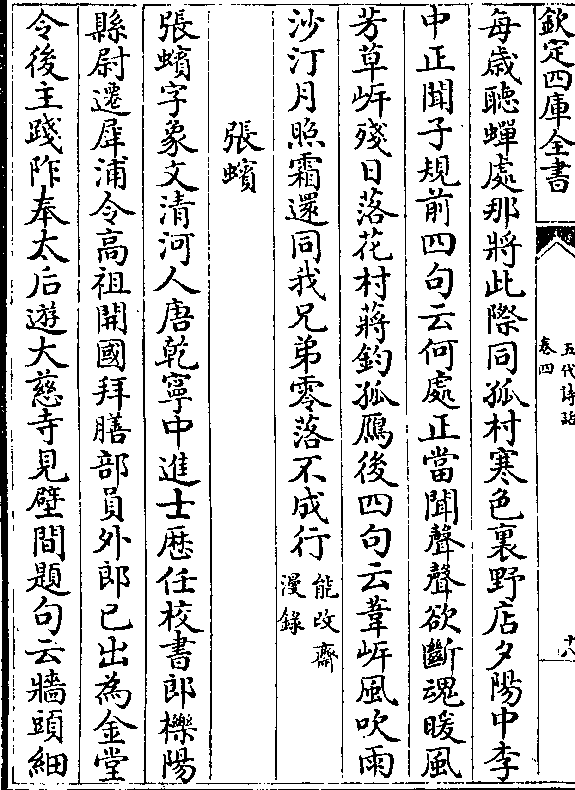 欽定四庫全書
五代詩話
卷四
十八
每歳聽蟬處那將此際同孤村寒色裏野店夕陽中李
中正聞子規前四句云何處正當聞聲聲欲斷魂暖風
芳草岍殘日落花村蔣鈞孤鴈後四句云葦岍風吹雨
沙汀月照霜還同我兄弟零落不成行能改齋
漫錄
張蠙
張蠙字象文清河人唐乾寧中進士歴任校書郎櫟陽
縣尉遷犀浦令高祖開國拜膳部員外郎已出為金堂
令後主踐阼奉太后遊大慈寺見壁間題句云牆頭細